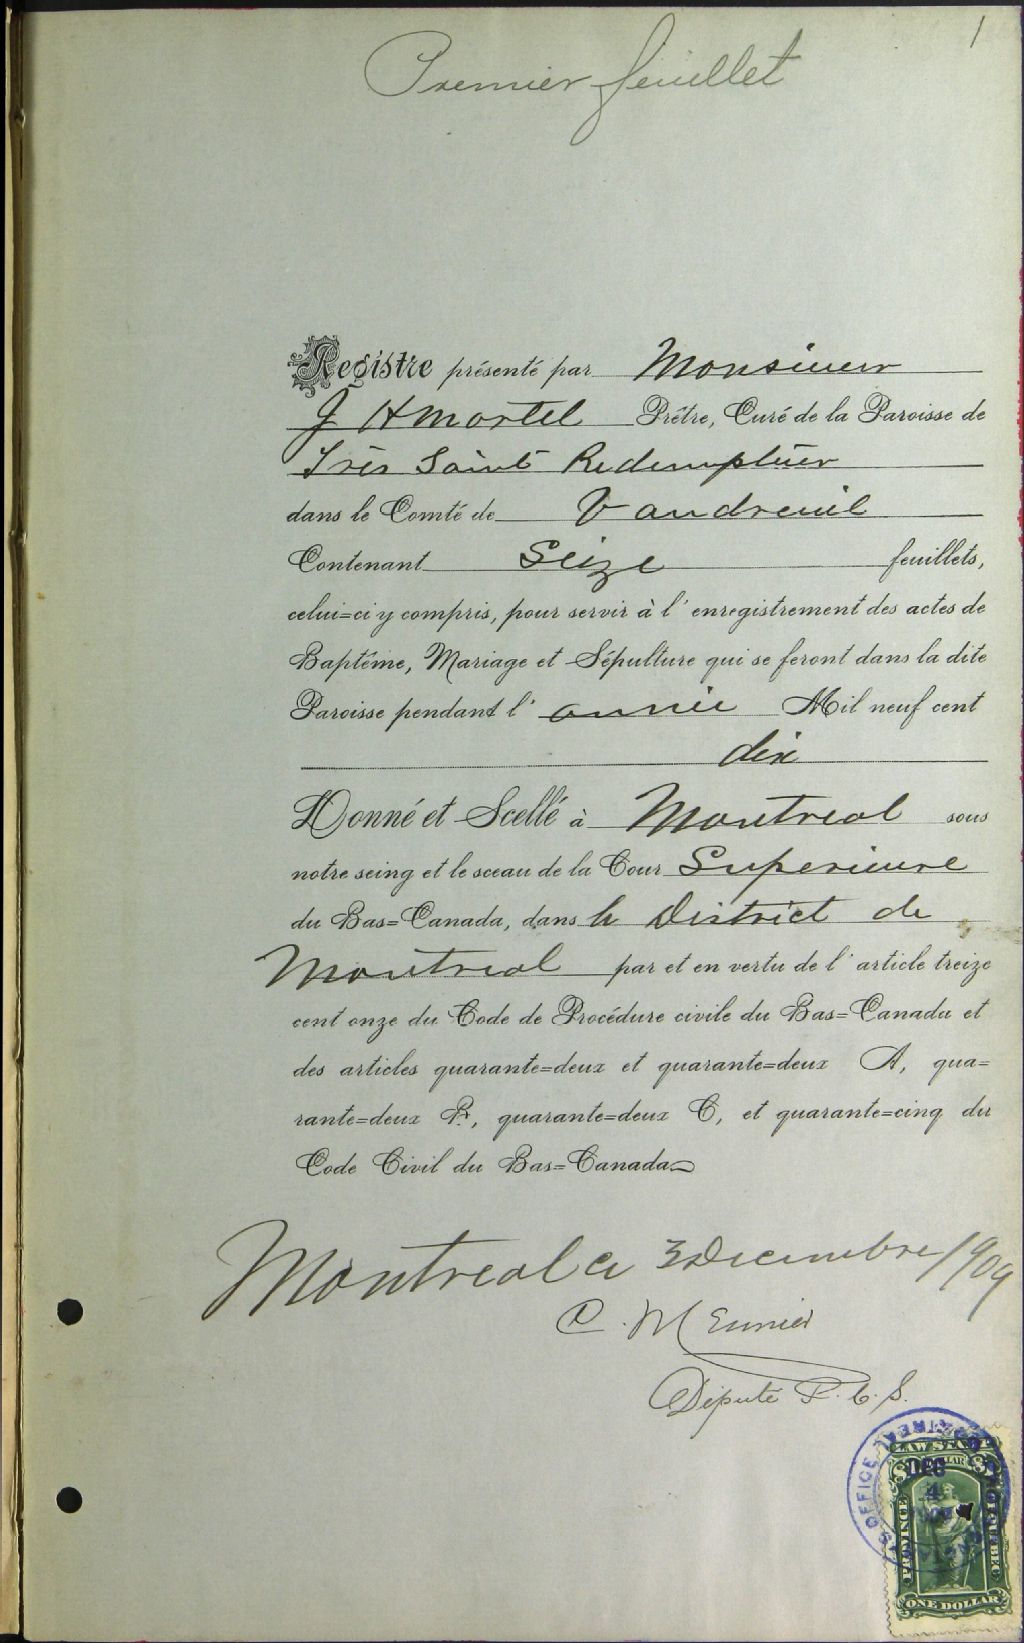 1
Premier feuillet
Registre présenté par Monsieur
J H Martel Prêtre, Curé de la Paroisse de
Très Saint Redempteur
dans le Comté de Vaudreuil
Contenant Seize feuillets,
celui=ci y compris, pour servir à l'enregistrement des actes de
Baptême, Mariage et Sépulture qui se feront dans la dite
Paroisse pendant l'année Mil neuf cent
dix
Donné et Scellé à Montreal sous
notre seing et le sceau de la Cour Superieure
du Bas=Canada, dans le District de
Montreal par et en vertu de l'article treize
cent onze du Code de Procédure civile du Bas=Canada et
des articles quarante=deux et quarante=deux A, qua=
rante=deux B, quarante=deux C, et quarante=cinq du
Code Civil du Bas=Canada
Montreal ce 3 Decembre 1909
C. Meunier
Député P. C. S.
LAW STAMP
DEC
4
PROVINCE OF QUEBEC
ONE DOLLAR